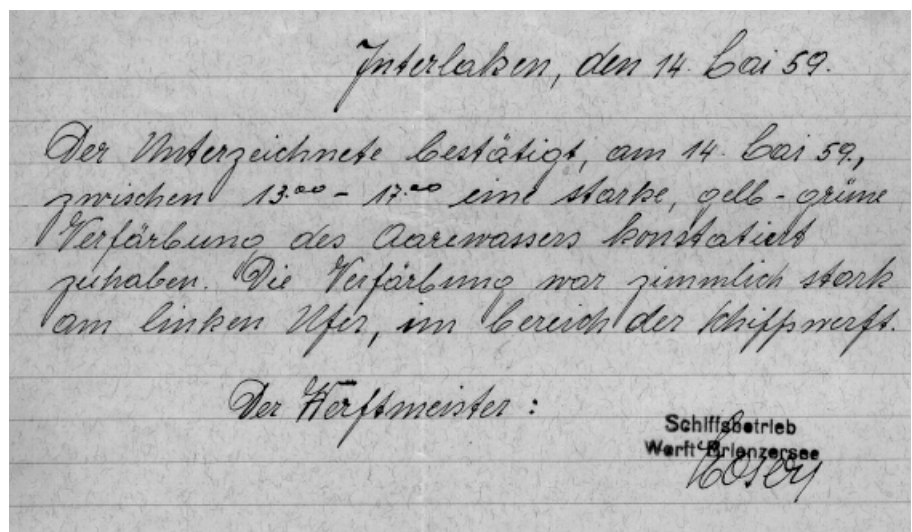 Interlaken, den 14. Mai 59.
Der Unterzeichnete bestätigt, am 14. Mai 59.,
zwischen 13.00 - 17.00 eine starke, gelb-grüne
Verfärbung des Aarewassers konstatiert
zuhaben. Die Verfärbung war zimmlich stark
am linken Ufer, im bereich der Schiffswerft.
Der Werftmeister :
Schiffsbetrieb
Werft Brienzersee